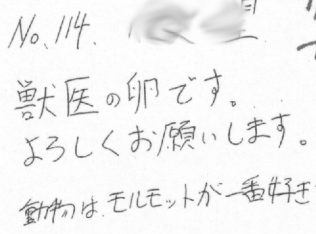 No. 114.
獣医の卵です。
よろしくお願いします。
動物は、モルモットが一番好き